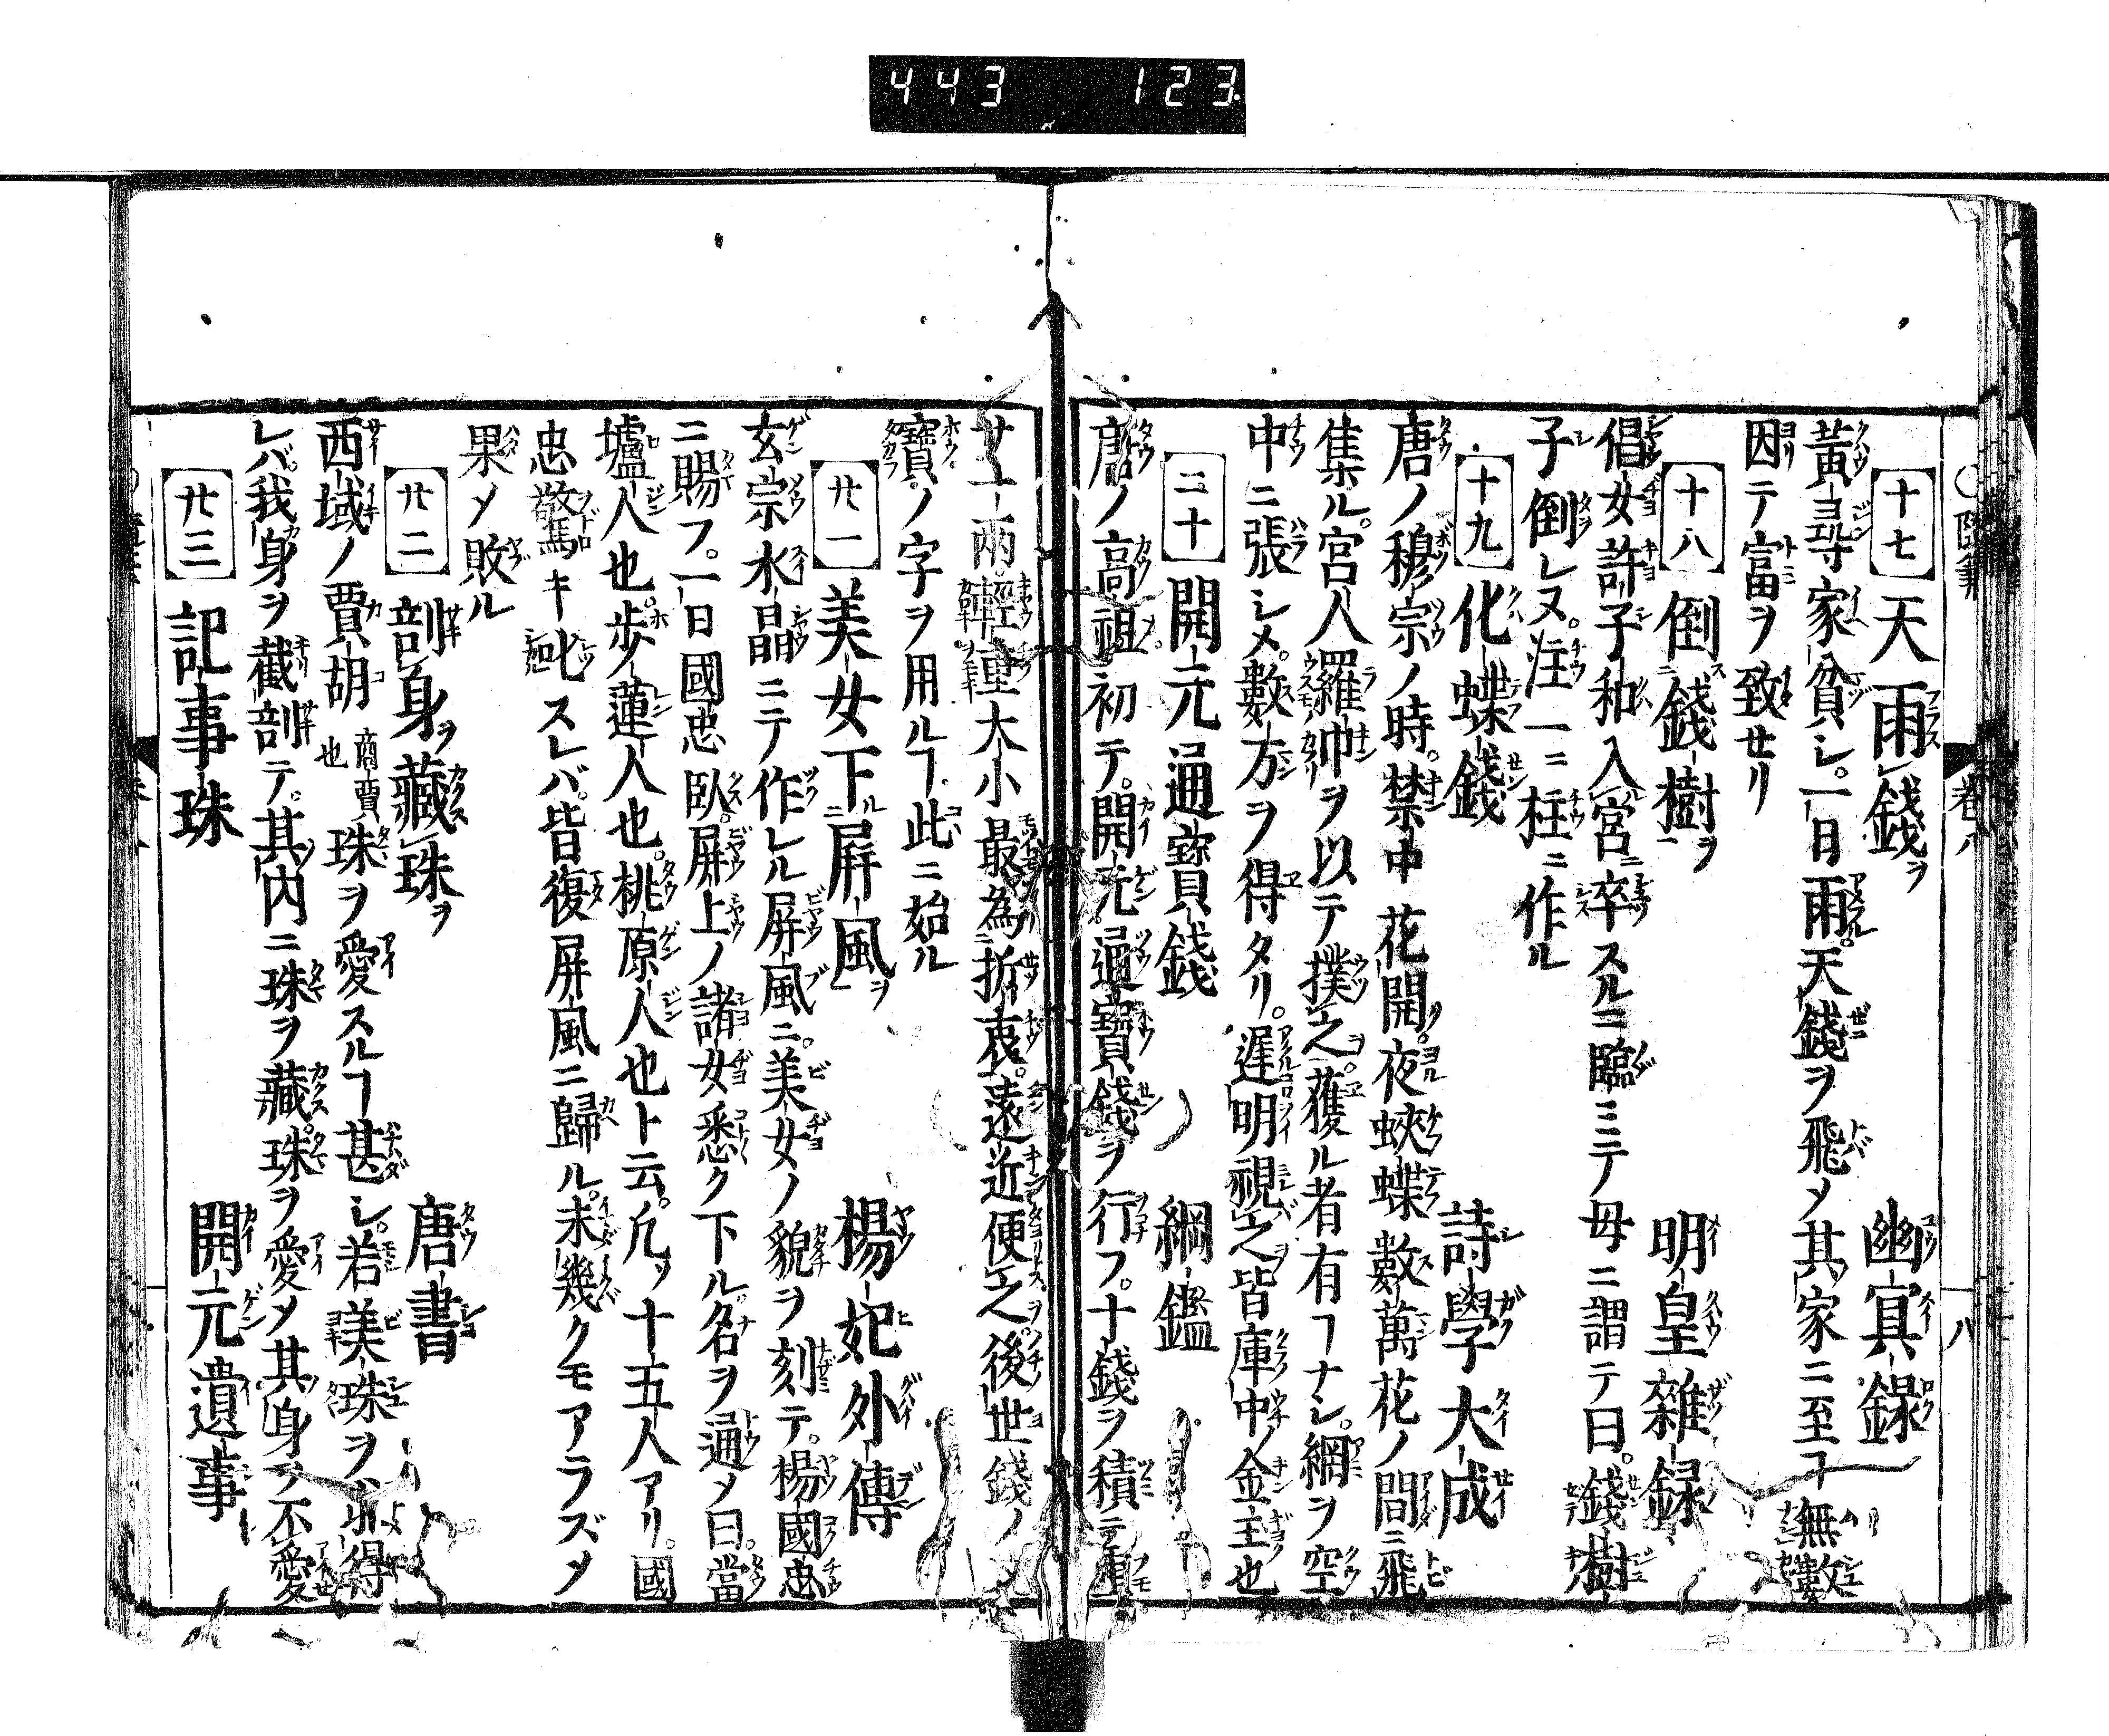 443 123
卷八
八
十七 天雨錢ヲ 幽寘録
黄尋家貧シ。一日雨。天錢ヲ飛メ其家ニ至ヿ無數
因テ富ヲ致セリ
十八 倒錢樹ヲ 明皇雜録
倡女許子和入宮卒スルニ臨ミテ母ニ謂テ曰。錢樹
子倒レヌ。注一ニ枉ニ作ル
十九 化蝶錢 詩學大成
唐ノ穆宗ノ時。禁中花開。夜蛺蝶數萬花ノ間ニ飛
集ル。宮人羅巾ヲ以テ撲之。獲ル者有ヿナシ。網ヲ空
中ニ張シメ。數方ヲ得タリ。遲明視之皆庫中ノ金玉也
二十 開元通寶錢 綱鑑
唐ノ高祖初テ。開元通寶錢ヲ行フ。十錢ヲ積テ重
サ一兩。輕重大小最為折衷。遠近便之後世錢ノ文
寶ノ字ヲ用ルヿ。此ニ始ル
廿一 美女下屏風ヲ 楊妃外傳
玄宗水晶ニテ作レル屏風ニ。美女ノ貌ヲ刻テ。楊國忠
ニ賜フ。一日國忠臥。屏上ノ諸女悉ク下ル。名ヲ通メ曰。當
壚人也。歩蓮人也。桃原人也ト云。凡ソ十五人アリ。國
忠驚キ叱スレバ。皆復屏風ニ歸ル。未幾クモアラズメ
果メ敗ル
廿二 剖身ヲ藏珠ヲ 唐書
西域ノ賈胡 商賈也 珠ヲ愛スルヿ甚シ。若美珠ヲ得
レバ。我身ヲ截剖テ。其内ニ珠ヲ藏。珠ヲ愛メ其身ヲ不愛
廿三 記事珠 開元遺事